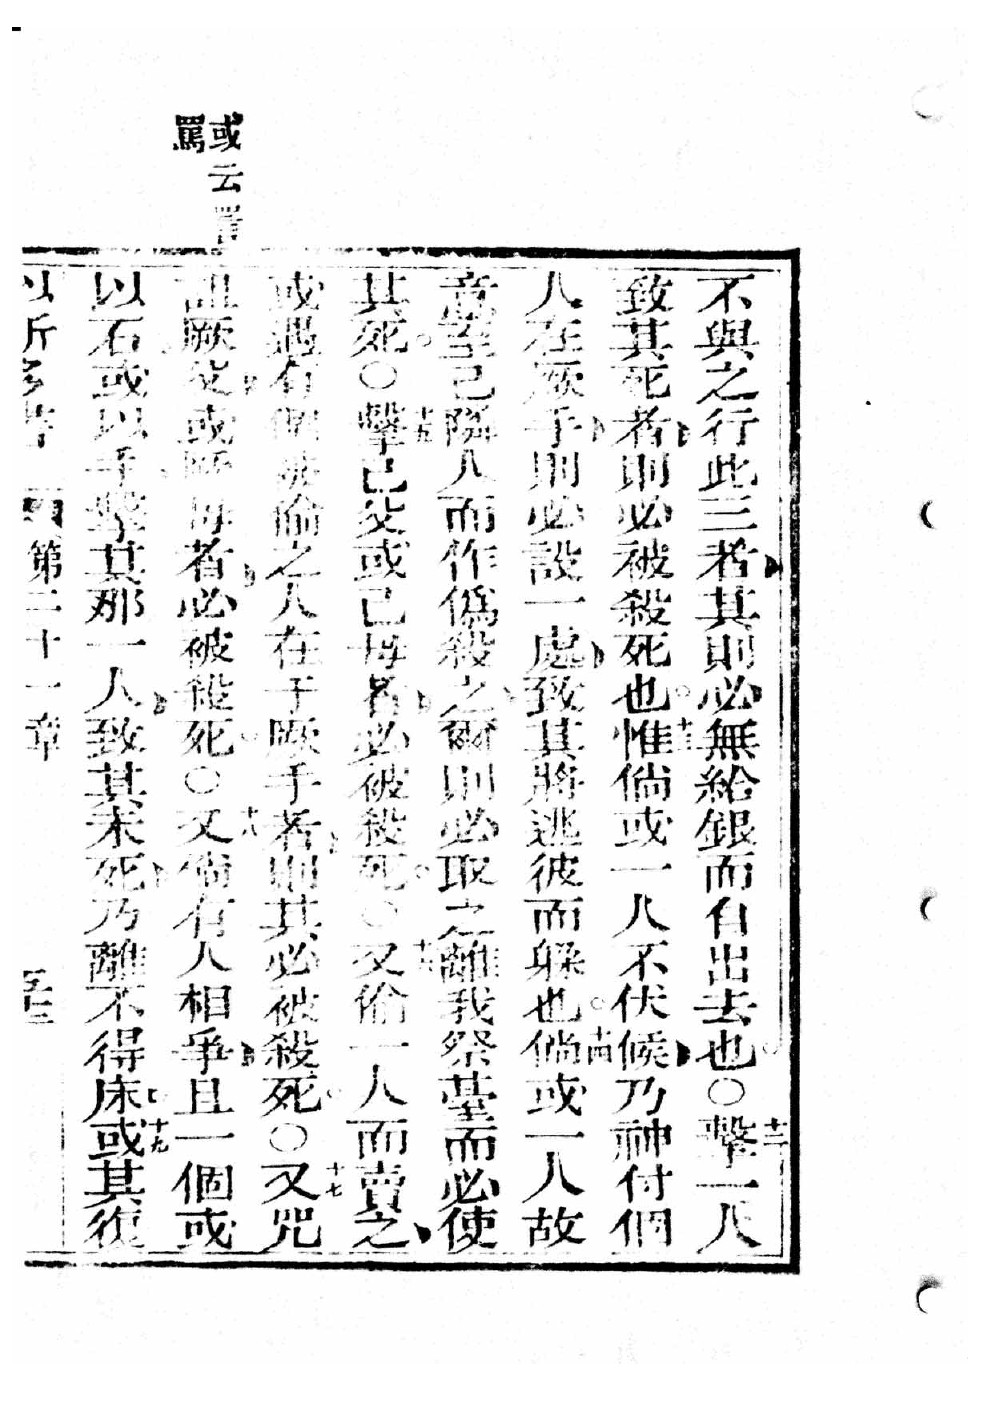 或云詈
罵
不與之行此三者其則必無給銀而自出去也○十二擊一人
致其死者則必被殺死也十三惟倘或一人不伏候乃神付個
人在厥手則必設一處致其將逃彼而躲也十四倘或一人故
意至己隣人而作僞殺之爾則必取之離我祭臺而必使
其死○十五擊己父或己母者必被殺死○十六又偷一人而賣之
或遇有個被偷之人在于厥手者則其必被殺死○十七又咒
詛厥父或厥母者必被殺死○十八又倘有人相爭且一個或
以石或以手擊其那一人致其未死乃離不得床十九或其復
第二十一章